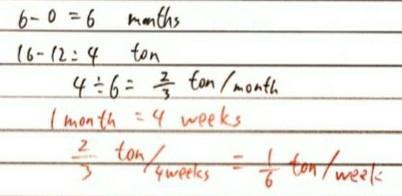 6-0=6 months
16-12=4 ton
4÷6= 2/3 ton/month
1 month = 4 weeks
2/3 ton/4weeks = 1/6 ton/week